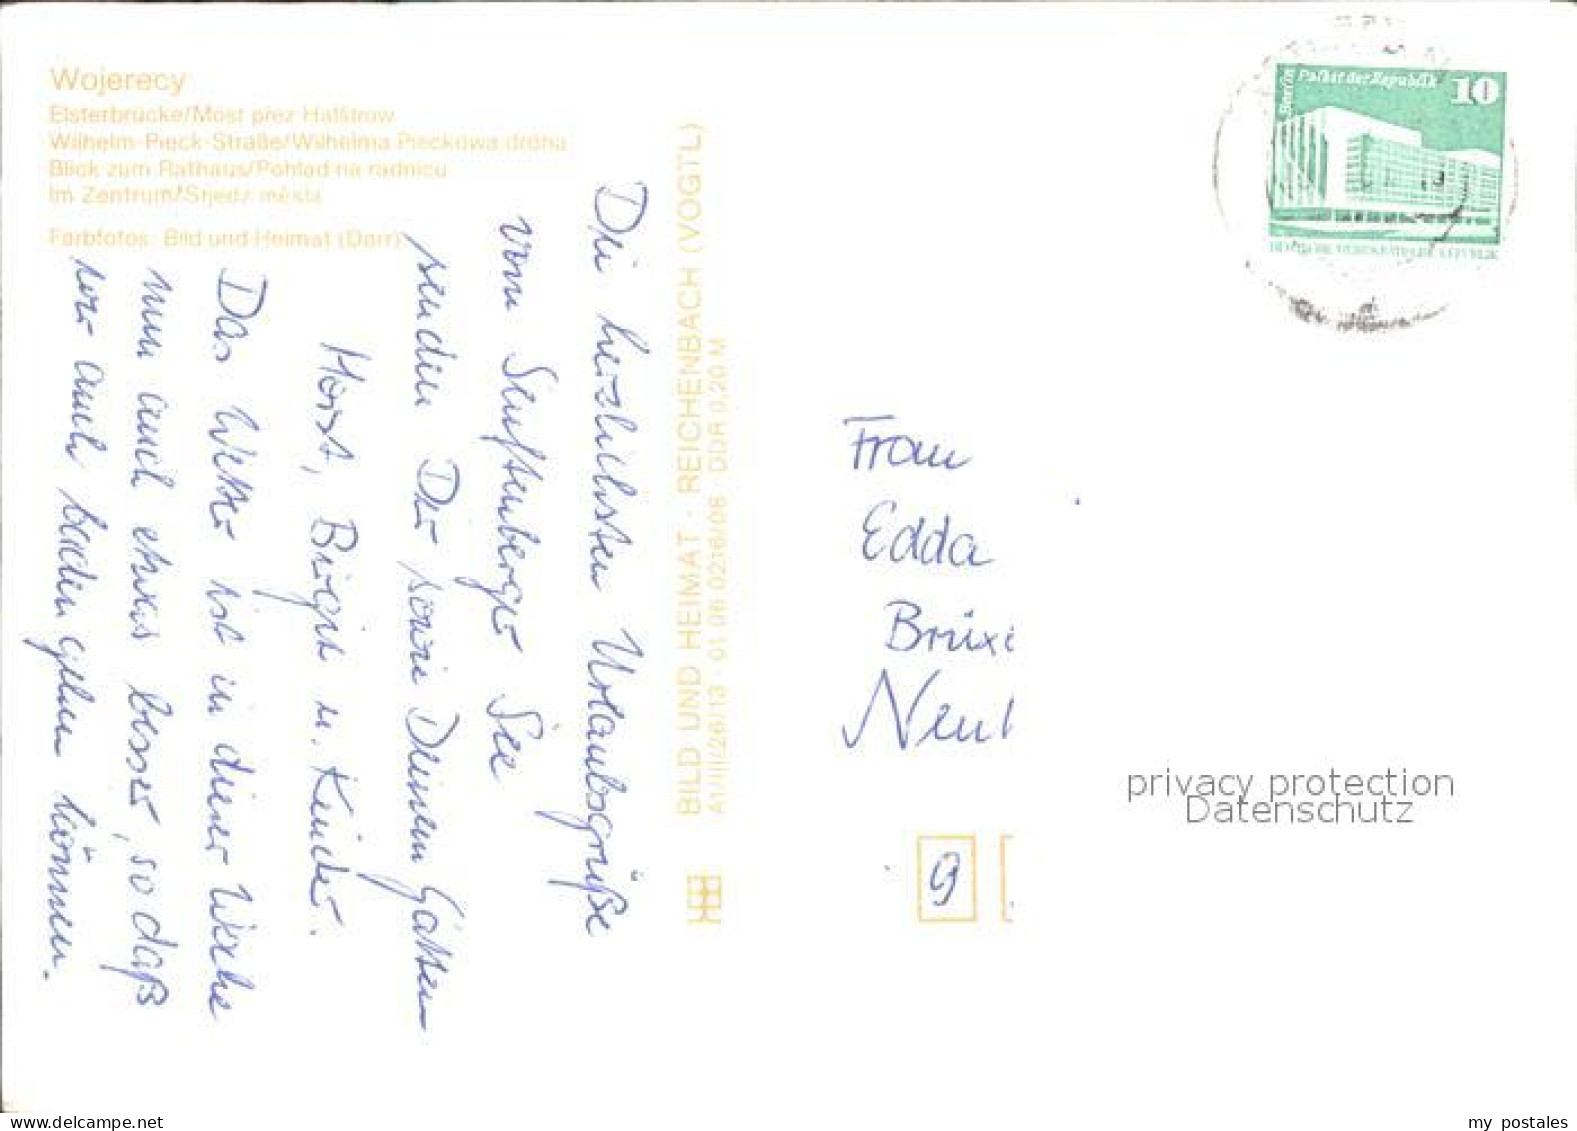 Wojerecy
Elsterbrücke/Most přez Halštrow
Wilhelm-Pieck-Straße/Wilhelma Pieckowa dróha
Blick zum Rathaus/Pohlad na radnicu
Im Zentrum/Srjedź města
Farbfotos: Bild und Heimat (Darr)
Die herzlichsten Urlaubsgrüße
vom Senftenberger See
senden Dir sowie Deinem Gatten
Horst, Birgit u. Kinder.
Das Wetter ist in dieser Woche
nun auch etwas besser, so daß
wir auch baden gehen können.
BILD UND HEIMAT · REICHENBACH (VOGTL)
A1/III/26/13 · 01 06 0216/08 · DDR 0,20 M
Berlin Palast der Republik 10
DEUTSCHE DEMOKRATISCHE REPUBLIK
Frau
Edda
Brüx
Neu
9
privacy protection
Datenschutz
my postales